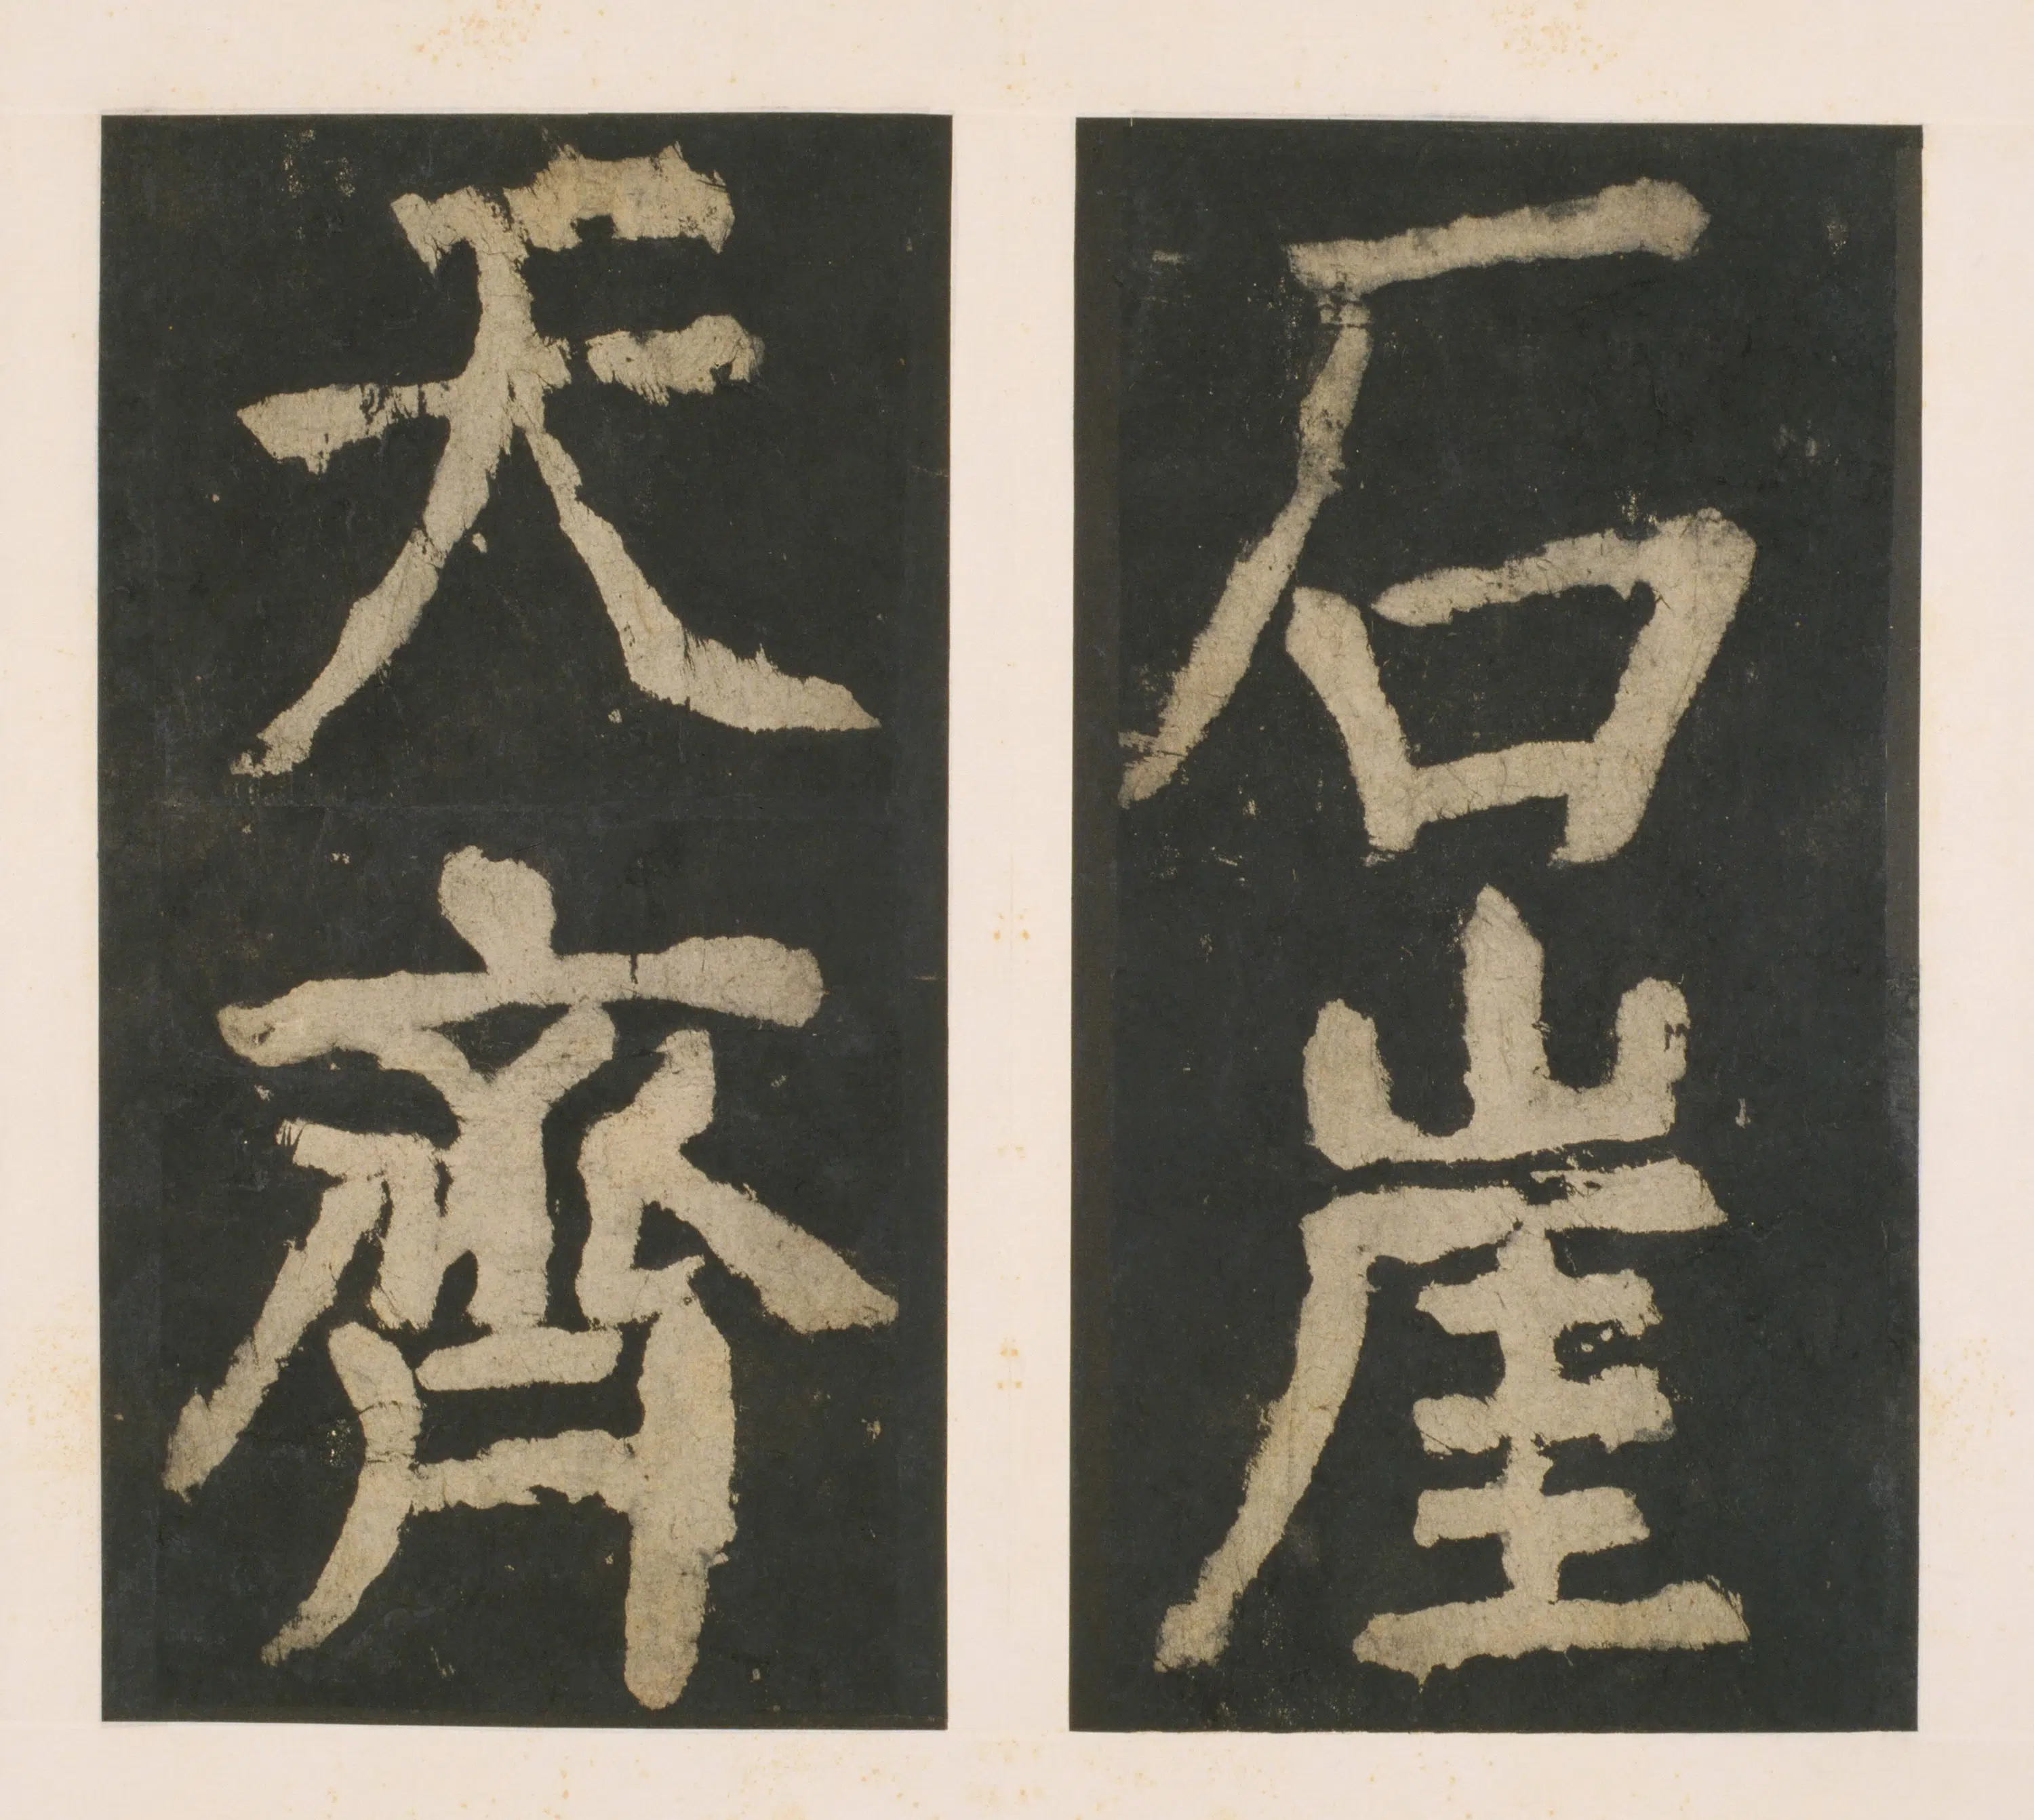 石崖
天齊